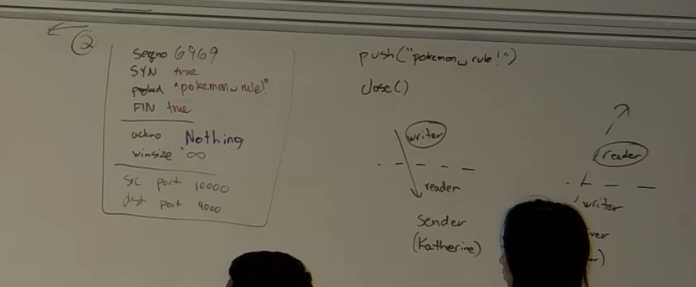 2
Seqno 6969
SYN true
payload "pokemon␣rule!"
FIN true
ackno Nothing
winsize ∞
src port 10000
dest port 9000
push("pokemon␣rule!")
close()
writer
reader
Sender
(Katherine)
reader
writer